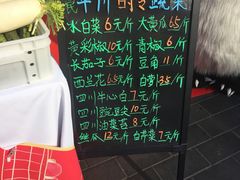 时令蔬菜
水白菜6元/斤 大黄瓜6.5/斤
黄彩椒10元/斤 青椒6/斤
长茄子6元/斤 豆角11/斤
西兰花6.5元/斤 白萝3.5/斤
四川牛心白7元/斤
四川豌豆尖10元/斤
四川油菜苔8元/斤
丝瓜12元/斤 白芹菜7元/斤